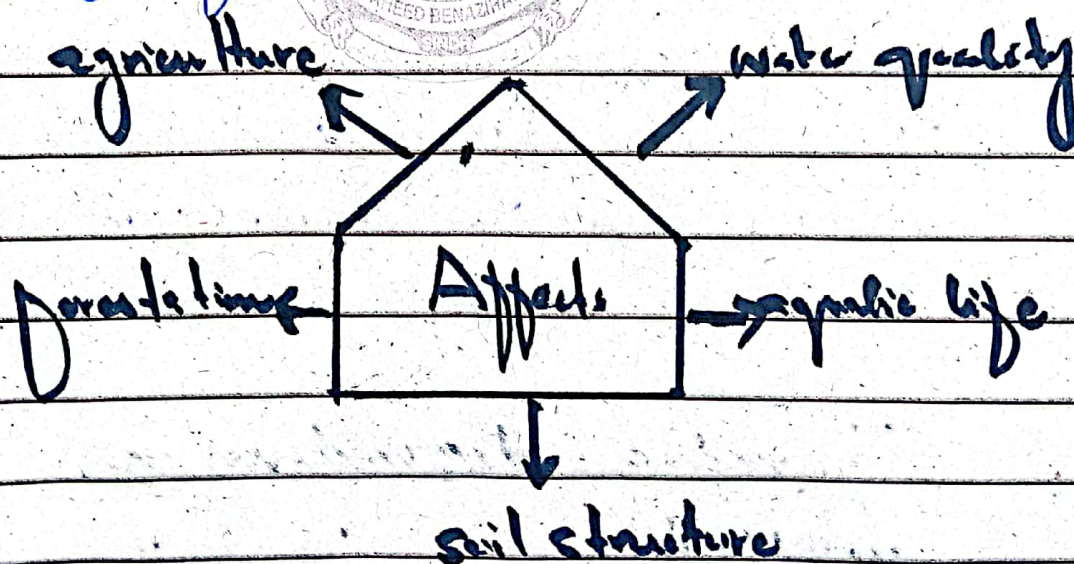 SHAHEED BENAZIR
agriculture
water quality
forestations
Affects
aquatic life
soil structure